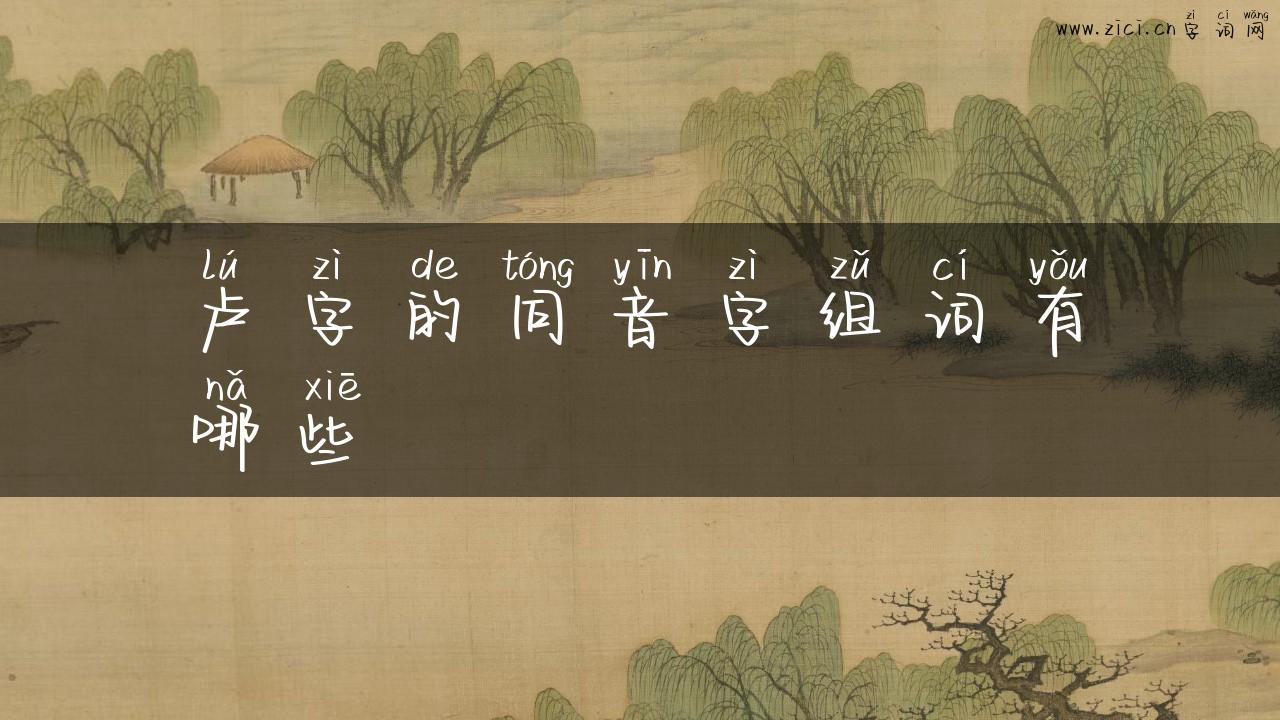 zì cí wǎng
www.zici.cn字词网
lú zì de tóng yīn zì zǔ cí yǒu
卢字的同音字组词有
nǎ xiē
哪些